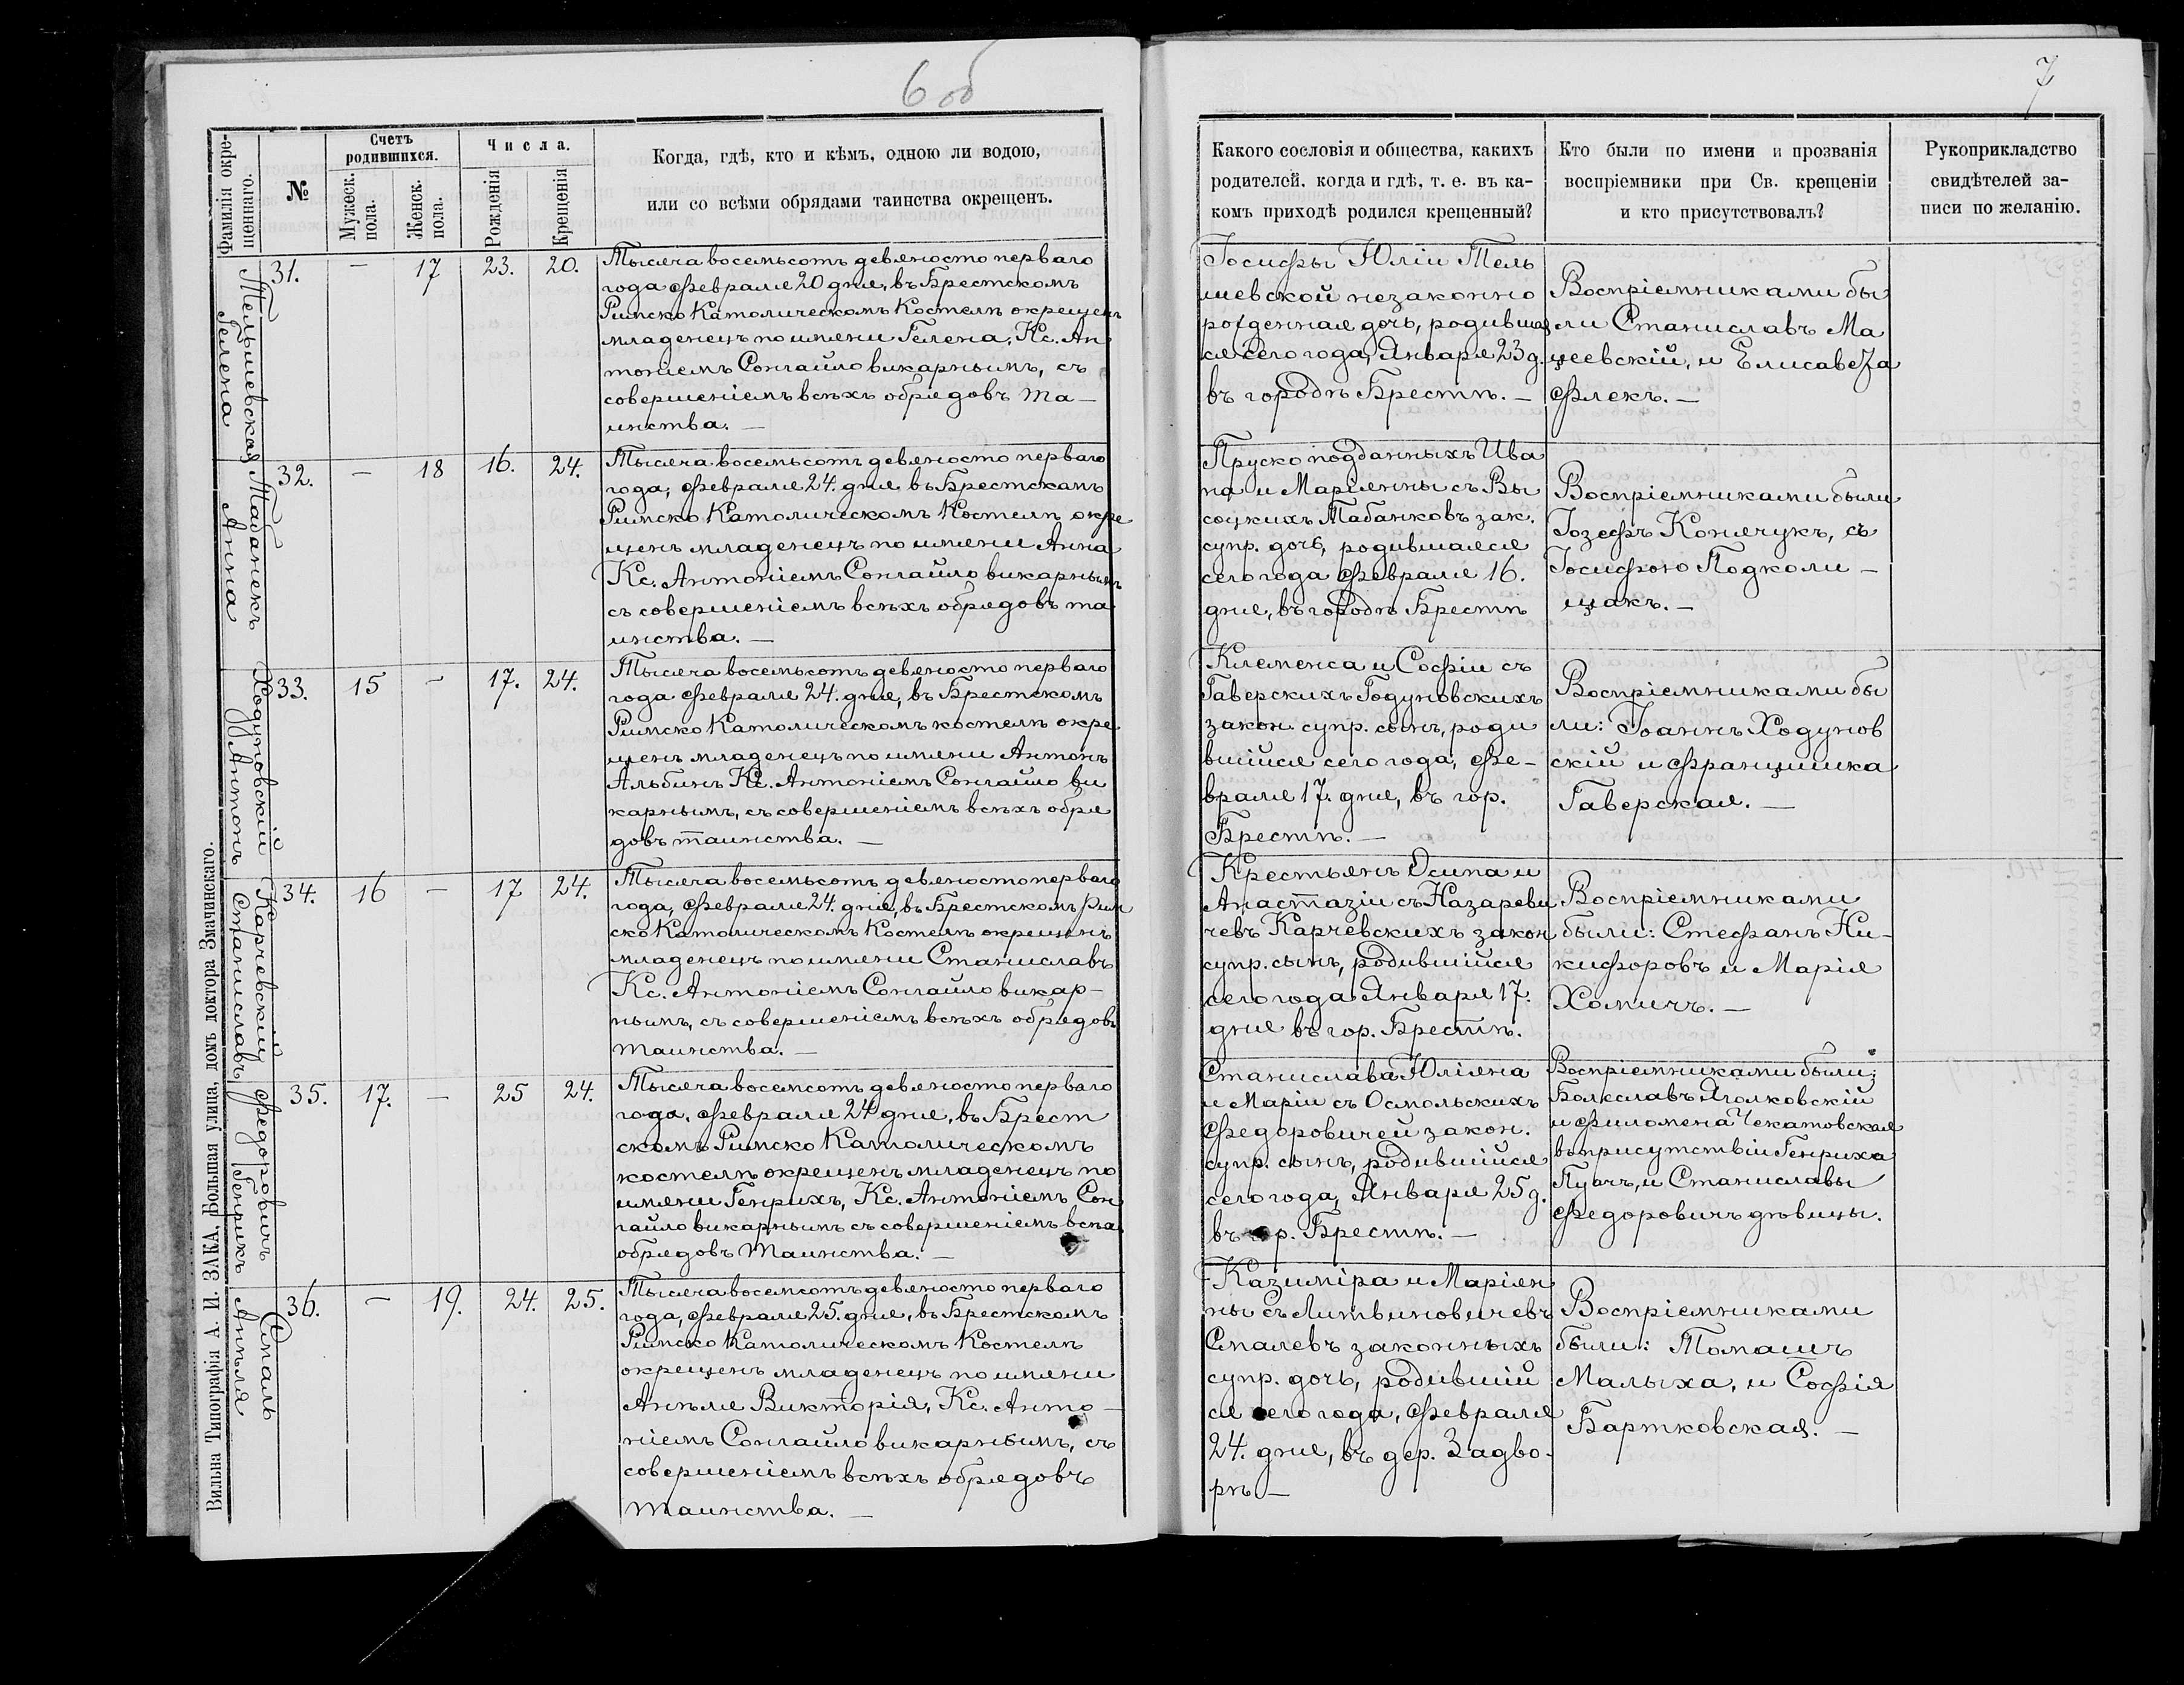 6 об
7
Фамилія окре-
щеннаго.
№
Счетъ
родившихся.
Мужеск.
пола.
Женск.
пола.
Числа.
Рожденія
Крещенія
Когда, гдѣ, кто и кѣмъ, одною ли водою,
или со всѣми обрядами таинства окрещенъ.
Какого сословія и общества, какихъ
родителей, когда и гдѣ, т. е. въ ка-
комъ приходѣ родился крещенный?
Кто были по имени и прозванія
воспріемники при Св. крещеніи
и кто присутствовалъ?
Рукоприкладство
свидѣтелей за-
писи по желанію.
Тельшевская
Гелена
31.
—
17
23.
20.
Тысяча восемьсотъ девяносто перваго
года Февраля 20 дня, въ Брестскомъ
Римско Католическомъ Костелѣ окрещенъ
младенецъ по имени Гелена, Кс. Ан
тоніемъ Сонгайло викарнымъ, съ
совершеніемъ всѣхъ обрядовъ та—
инства. —
Іосифы Юліи Тель
шевской незаконно
рожденная дочь, родившая
ся сего года, Января 23 д.
въ городѣ Брестѣ. —
Воспріемниками бы
ли Станиславъ Ма
цеевскій, и Елисавета
Флекъ. —
Табанекъ
Анна
32.
—
18
16.
24.
Тысяча восемьсотъ девяносто перваго
года, Февраля 24. дня въ Брестскамъ
Римско Католическомъ Костелѣ окре
щенъ младенецъ по имени Анна
Кс. Антоніемъ Сонгайло викарнымъ
съ совершеніемъ всѣхъ обрядовъ та
инства. —
Пруско подданныхъ Ива
на и Маріянны съ Вы
соцкихъ Табанковъ зак.
супр. дочь, родившаяся
сего года Февраля 16.
дня, въ городѣ Брестѣ
Воспріемниками были
Іозефъ Конячукъ, съ
Іосифою Подколи—
щакъ. —
Ходуновскій
Антонъ
33.
15
—
17.
24.
Тысяча восемьсотъ девяносто перваго
года Февраля 24. дня, въ Брестскомъ
Римско Католическомъ костелѣ окре
щенъ младенецъ по имени Антонъ
Альбинъ Кс. Антоніемъ Сонгайло ви
карнымъ, съ совершеніемъ всѣхъ обря
довъ таинства. —
Клеменса и Софіи съ
Гаверскихъ Годуновскихъ
закон. супр. сынъ, роди
вшійся сего года, Фе—
враля 17. дня, въ гор.
Брестѣ. —
Воспріемниками бы
ли: Іоаннъ Ходунов
скій и Францишка
Гаверская. —
Карчевскій
Станиславъ
34.
16
—
17
24.
Тысяча восемьсотъ девяносто перваго
года, Февраля 24. дня, въ Брестскомъ Рим
ско Католическомъ Костелѣ окрещенъ
младенецъ по имени Станиславъ
Кс. Антоніемъ Сонгайло викар—
нымъ, съ совершеніемъ всѣхъ обрядовъ
таинства. —
Крестьянъ Осипа и
Анастазіи съ Назареви
чевъ Карчевскихъ закон
супр. сынъ, родившійся
сего года Января 17.
дня въ гор. Брестѣ.
Воспріемниками
были: Стефанъ Ни—
кифоровъ и Марія
Хомичъ. —
Федоровичъ
Генрихъ
35.
17.
—
25
24.
Тысяча восемсотъ девяносто перваго
года, Февраля 24 дня, въ Брест
скомъ Римско Католическомъ
костелѣ окрещенъ младенецъ по
имени Генрихъ, Кс. Антоніемъ Сон
гайло викарнымъ съ совершеніемъ всѣхъ
обрядовъ Таинства. —
Станислава Юліяна
и Маріи съ Осмольскихъ
Федоровичей закон.
супр. сынъ, родившійся
сего года, Января 25 д.
въ гор. Брестѣ. —
Воспріемниками были:
Болеславъ Яголковскій
и Филомена Чекатовская
въ присутствіи Генриха
Пуачъ, и Станиславы
Федоровичъ дѣвицы.
Смаль
Анѣля
36.
—
19.
24.
25.
Тысяча восемсотъ девяносто перваго
года, Февраля 25. дня, въ Брестскомъ
Римско Католическомъ Костелѣ
окрещенъ младенецъ по имени
Анѣля Викторія, Кс. Анто—
ніемъ Сонгайло викарнымъ, съ
совершеніемъ всѣхъ обрядовъ
таинства. —
Казиміра и Маріян
ны съ Литвиновичевъ
Смалевъ законныхъ
супр. дочь, родивший
ся сего года, Февраля
24. дня, въ дер. Задво—
рѣ. —
Воспріемниками
были: Томашъ
Малыха, и Софія
Бартковская. —
Вильна Типографія А. И. ЗАКА, Большая улица, домъ доктора Змачинскаго.